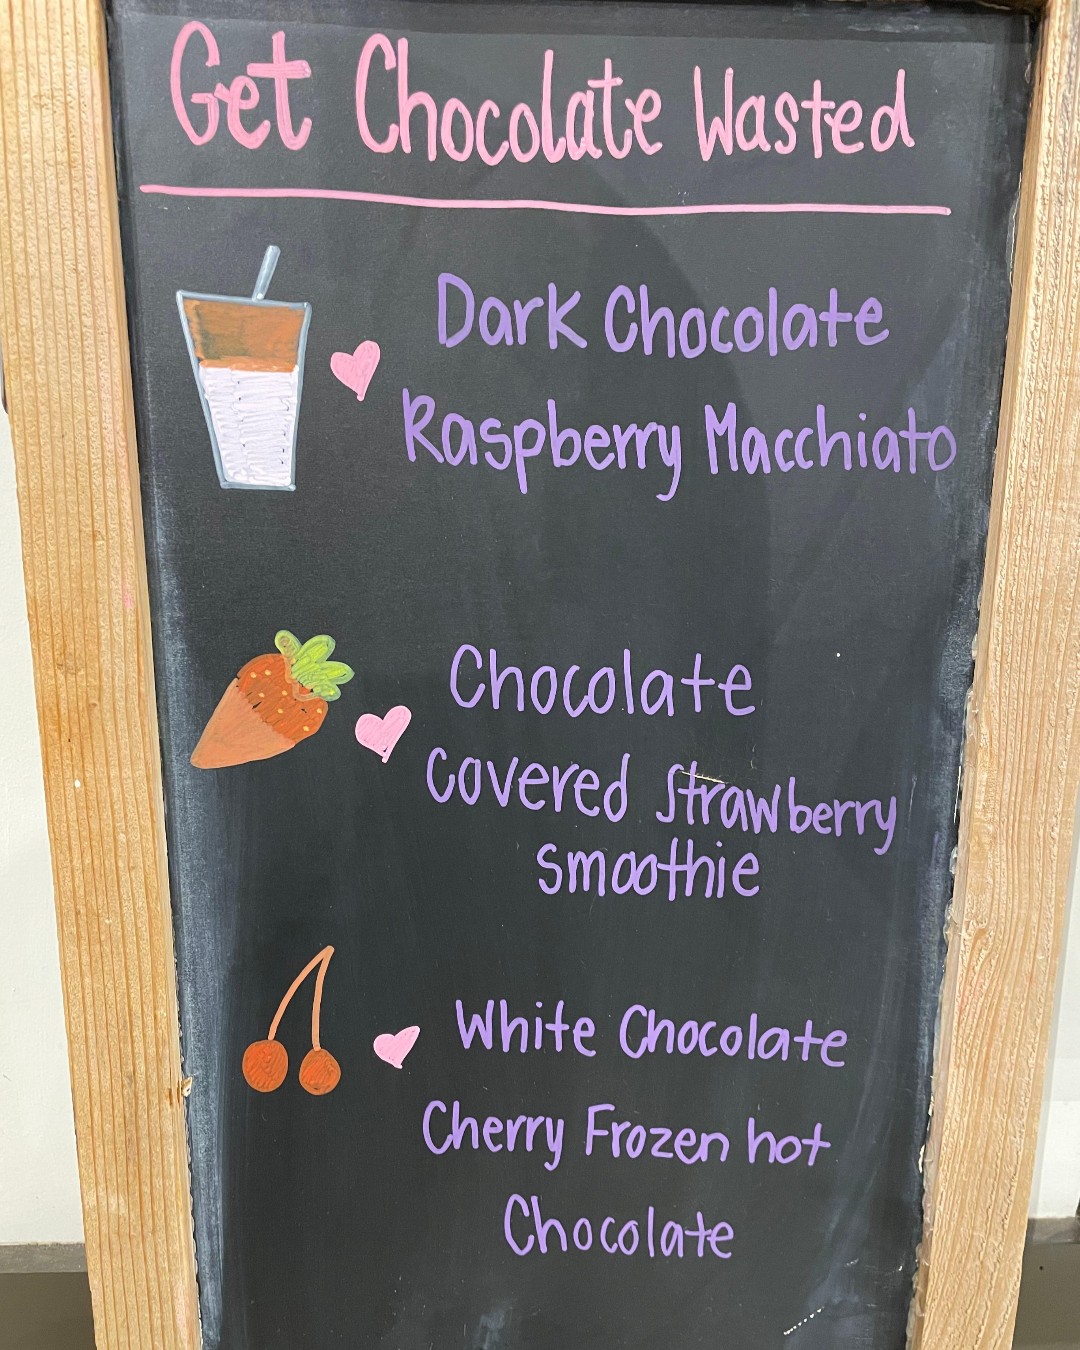 Get Chocolate Wasted
Dark Chocolate
Raspberry Macchiato
Chocolate
Covered Strawberry
smoothie
White Chocolate
Cherry Frozen hot
Chocolate